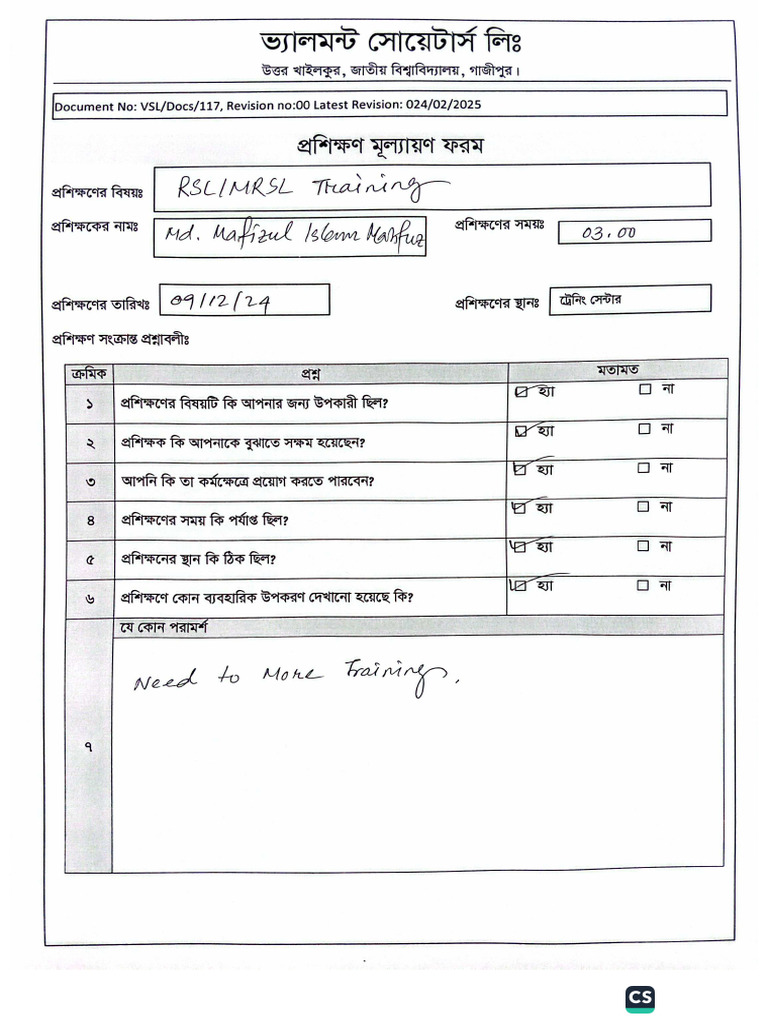 ভ্যালমন্ট সোয়েটার্স লিঃ
উত্তর খাইলকুর, জাতীয় বিশ্ববিদ্যালয়, গাজীপুর।
Document No: VSL/Docs/117, Revision no:00 Latest Revision: 024/02/2025
প্রশিক্ষণ মূল্যায়ণ ফরম
প্রশিক্ষণের বিষয়ঃ RSL/MRSL Training
প্রশিক্ষকের নামঃ Md. Mafizul Islam Mahfuz প্রশিক্ষণের সময়ঃ 03.00
প্রশিক্ষণের তারিখঃ 09/12/24 প্রশিক্ষণের স্থানঃ ট্রেনিং সেন্টার
প্রশিক্ষণ সংক্রান্ত প্রশ্নাবলীঃ
ক্রমিক প্রশ্ন মতামত
১ প্রশিক্ষণের বিষয়টি কি আপনার জন্য উপকারী ছিল? ☑ হ্যা ☐ না
২ প্রশিক্ষক কি আপনাকে বুঝাতে সক্ষম হয়েছেন? ☑ হ্যা ☐ না
৩ আপনি কি তা কর্মক্ষেত্রে প্রয়োগ করতে পারবেন? ☑ হ্যা ☐ না
৪ প্রশিক্ষণের সময় কি পর্যাপ্ত ছিল? ☑ হ্যা ☐ না
৫ প্রশিক্ষনের স্থান কি ঠিক ছিল? ☑ হ্যা ☐ না
৬ প্রশিক্ষণে কোন ব্যবহারিক উপকরণ দেখানো হয়েছে কি? ☑ হ্যা ☐ না
যে কোন পরামর্শ
৭ Need to More Training.
CS